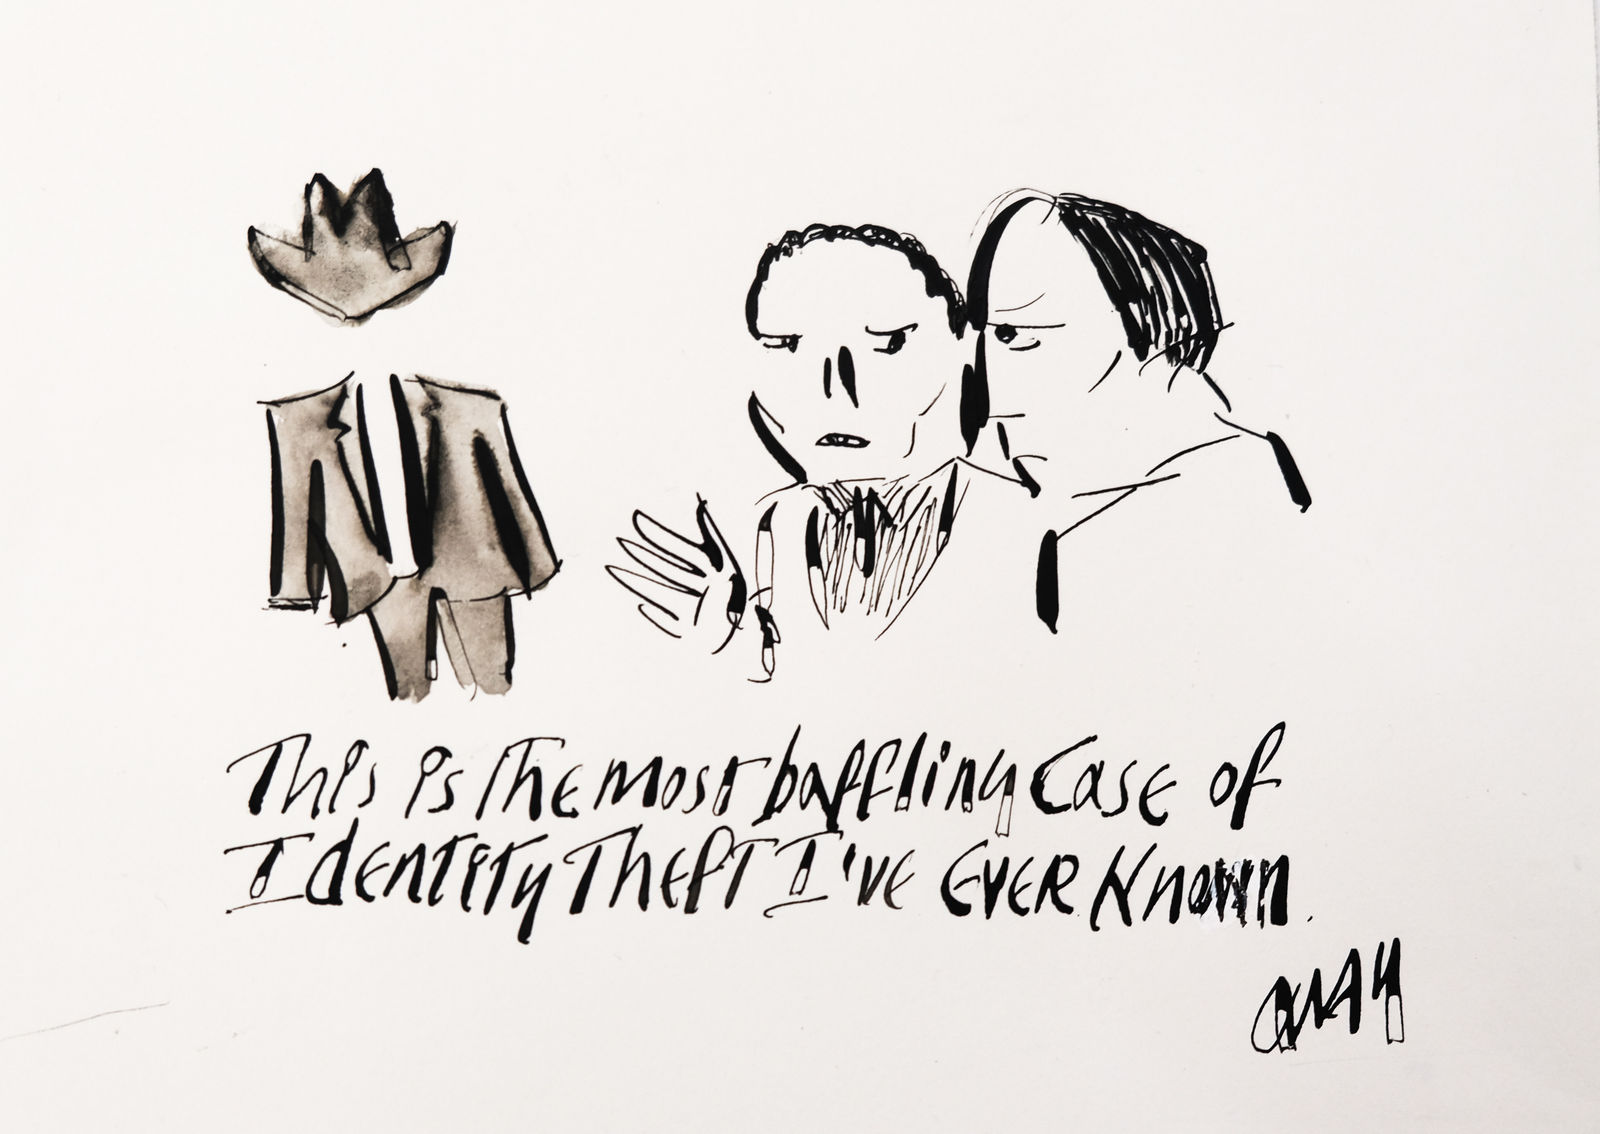 This is The most baffling Case of
Identity Theft I've Ever Known.
QUAY